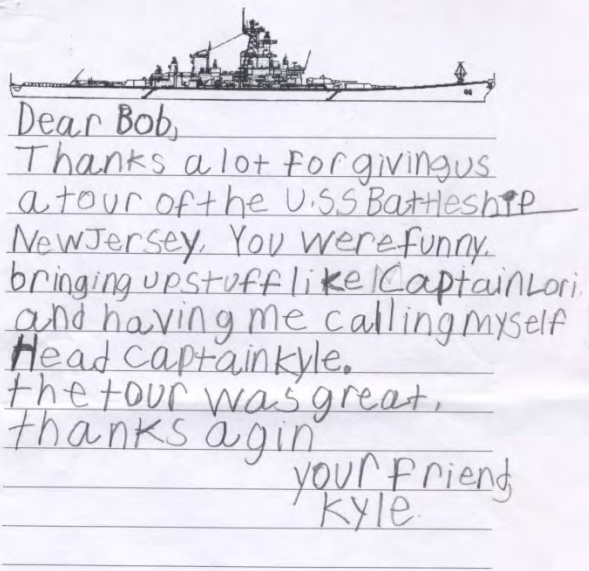 Dear Bob,
Thanks a lot for giving us
a tour of the U.S.S Battleship
New Jersey. You were funny.
bringing up stuff like Captain Lori.
and having me calling myself
Head captain Kyle.
the tour was great.
thanks agin
your friend,
Kyle.